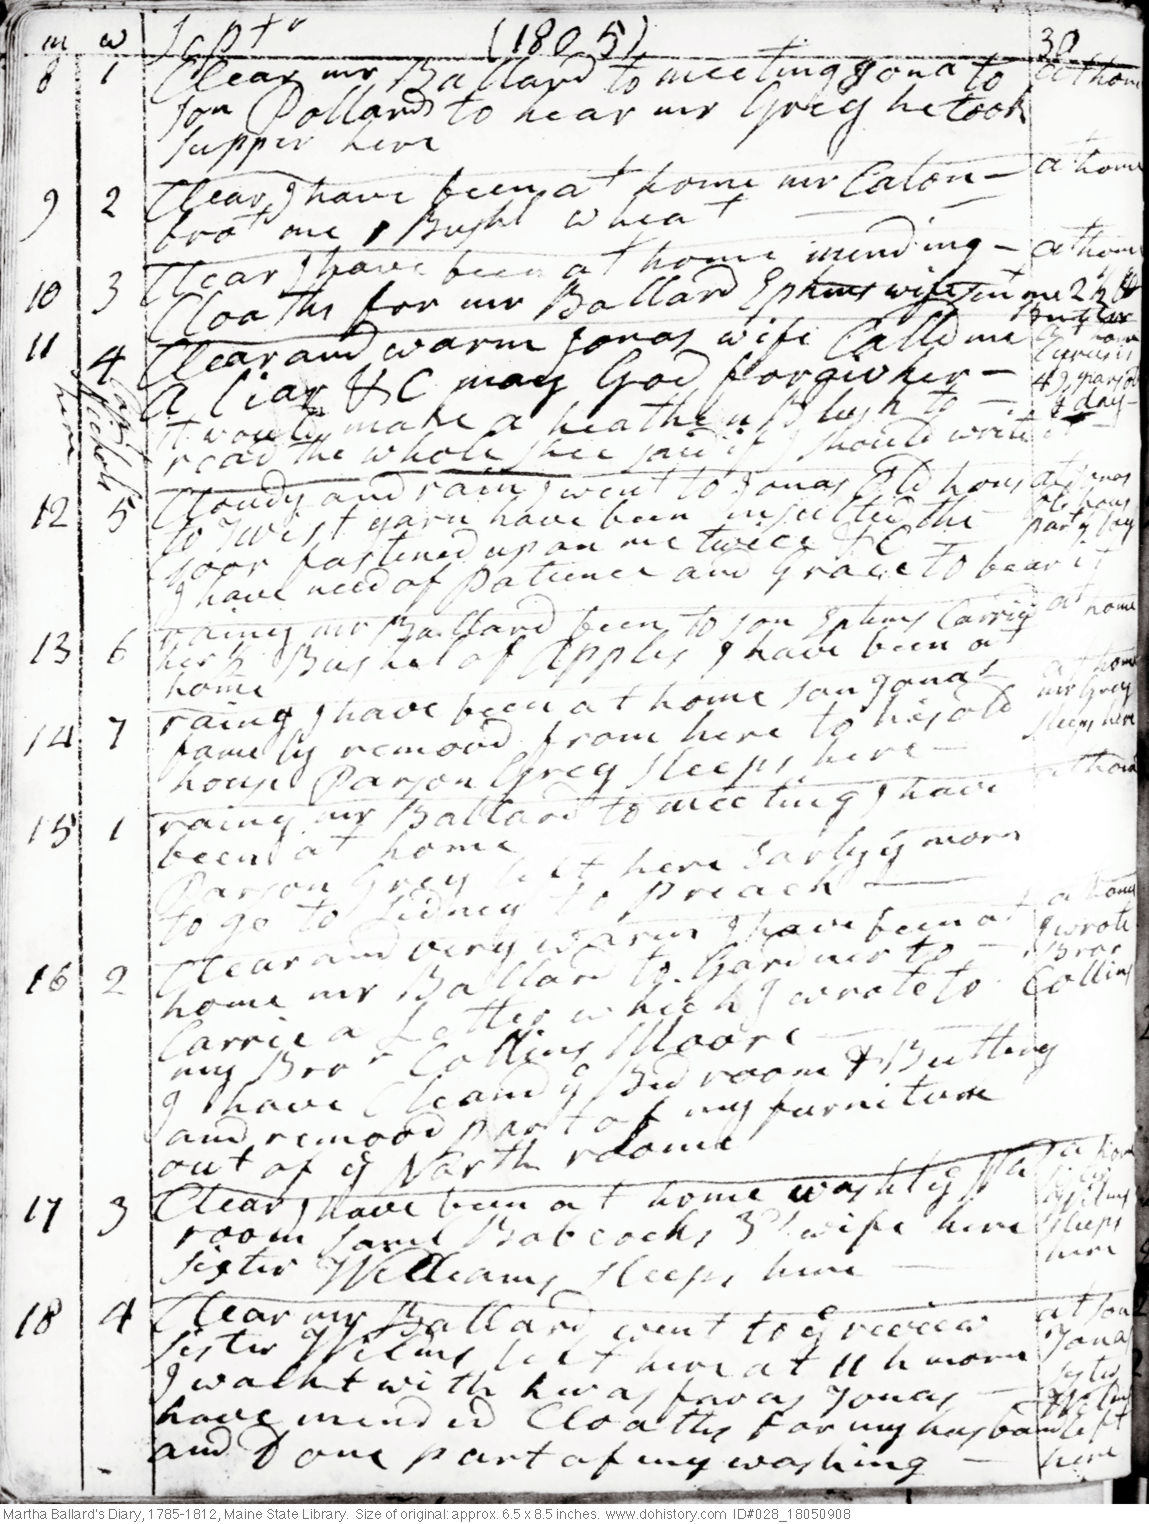 m w Sept r (1805) 30
8 1 Clear mr Ballard to meeting Jona to at home
son Pollards to hear mr Greg he took
supper here
9 2 Clear, I have been at home mr Caton - at home
brot me 1 Bushl wheat
10 3 Clear I have been at home mending - at home
Cloaths for mr Ballard Ephms wife sent me 2 lb
Butter
11 4 Clear and warm Jonas wife Calld me at home
a liar &C may God forgiv her -
it would make a heathen Blush to -
read the whole shee said if I should write it
12 5 Cloudy and rain, I went to Jonas Old hous at Jonas
to twist yarn have been insulted the old hous
Door fastened upon me twice &C part of day
I have need of patience and Grace to bear it
13 6 rainy mr Ballard been to son Ephms Carried at home
her Bushel of Apples I have been at
home
14 7 rainy I have been at home son Jonas at home
family remood from here to his old mr Greg
house Parson Greg sleeps here - sleeps here
15 1 rainy mr Ballard to meeting I have at home
been at home
Parson Greg left here Early y morn
to go to Sidney to Preach
16 2 Clear and very warm I have been at at home
home mr Ballard to Gardner to - I wrote
Carrie a Letter which I wrote to Bror
my Bror Collins Moore Collins
I have Cleand y Bed room & Buttery
and remood part of my furniture
out of y North roome
17 3 Clear I have been at home washt y
room Saml Babcocks 3d wife here sleeps
sister Williams sleeps here here
18 4 Clear mr Ballard went to y review at son
sister Wilms left here at 11 h morn Jonas
I walkt with her as far as Jonas - sister
have mended Cloaths for my husband left
and Done part of my washing - here
Martha Ballard's Diary, 1785-1812, Maine State Library. Size of original: approx. 6.5 x 8.5 inches. www.dohistory.com ID#028_18050908